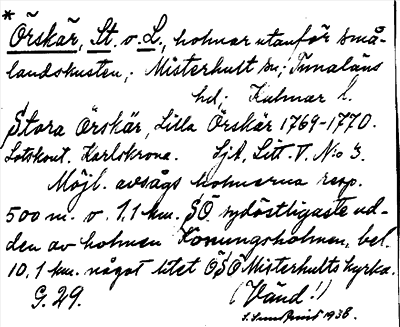 *
Örskär, St. o. L., holmar utanför små-
landskusten, Misterhult sn; Tunaläns
hd; Kalmar l.
Stora Örskär, Lilla Örskär 1769-1770.
Lotskont. Karlskrona. SjA, Litt. V. N:o 3.
Möjl. avsågs holmarna resp.
500 m. o. 1.1 km. SÖ sydöstligaste ud-
den av holmen Konungsholmen, bel.
10,1 km. något litet ÖSÖ Misterhults kyrka.
G. 29. (Vänd!)
S. Sundqvist 1938.